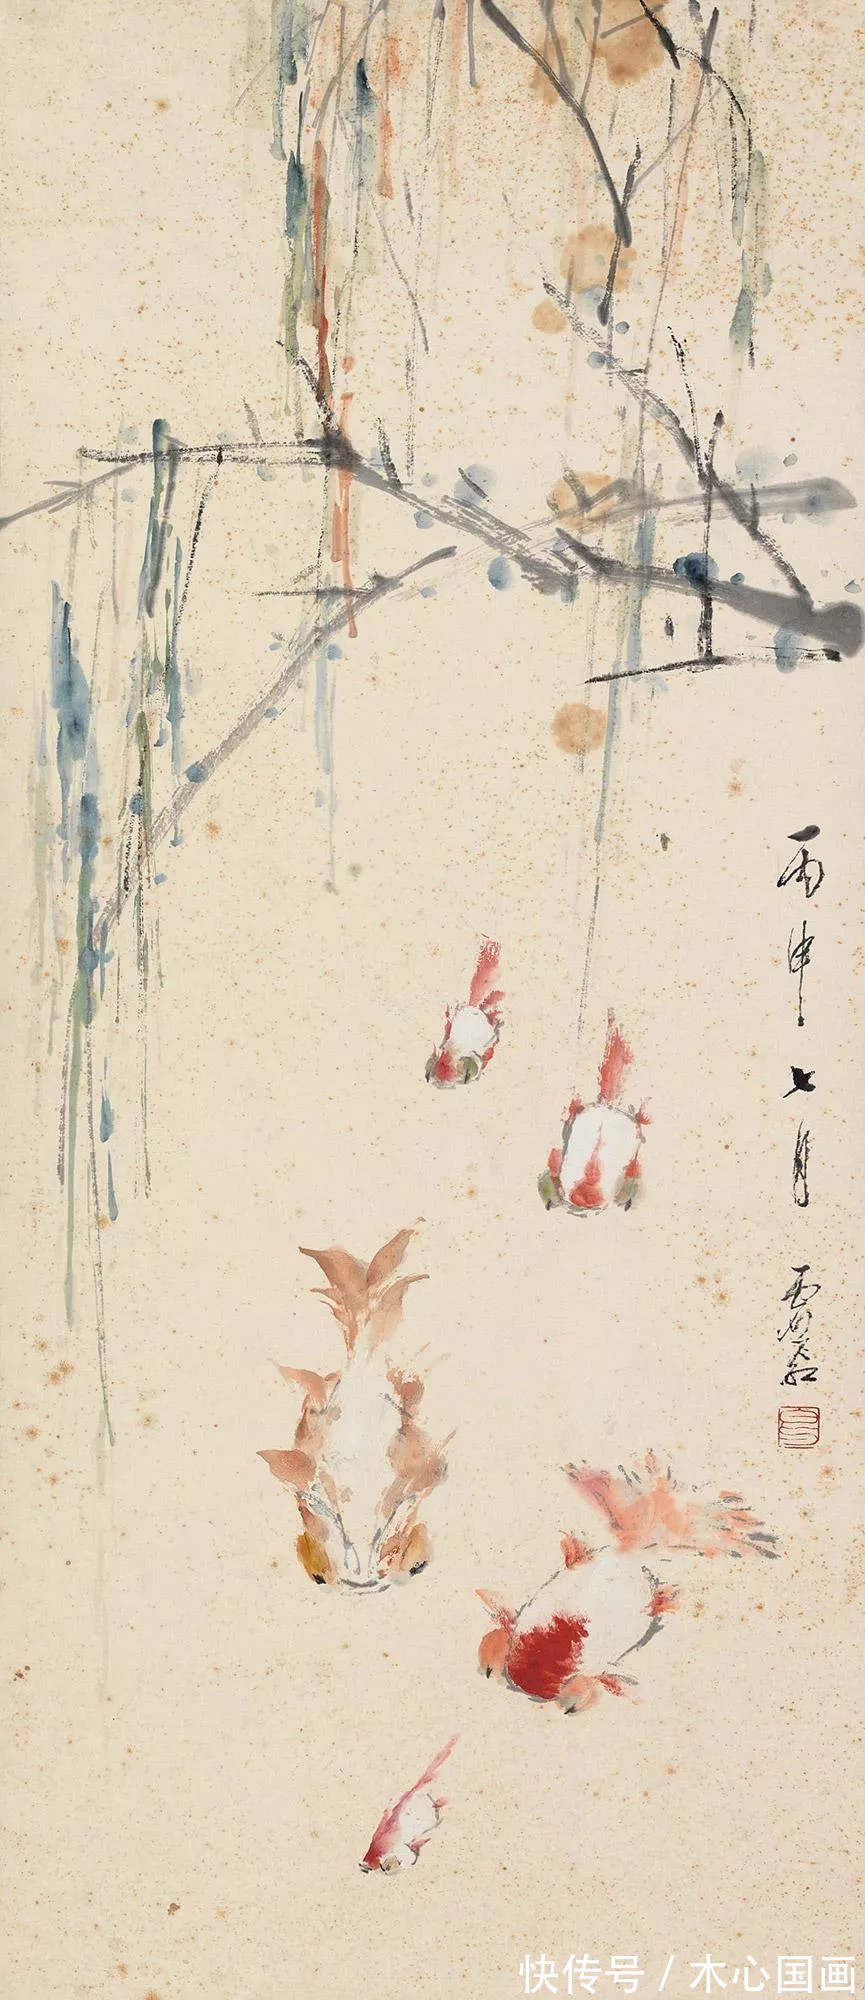 丙申七月
快传号 / 木心国画